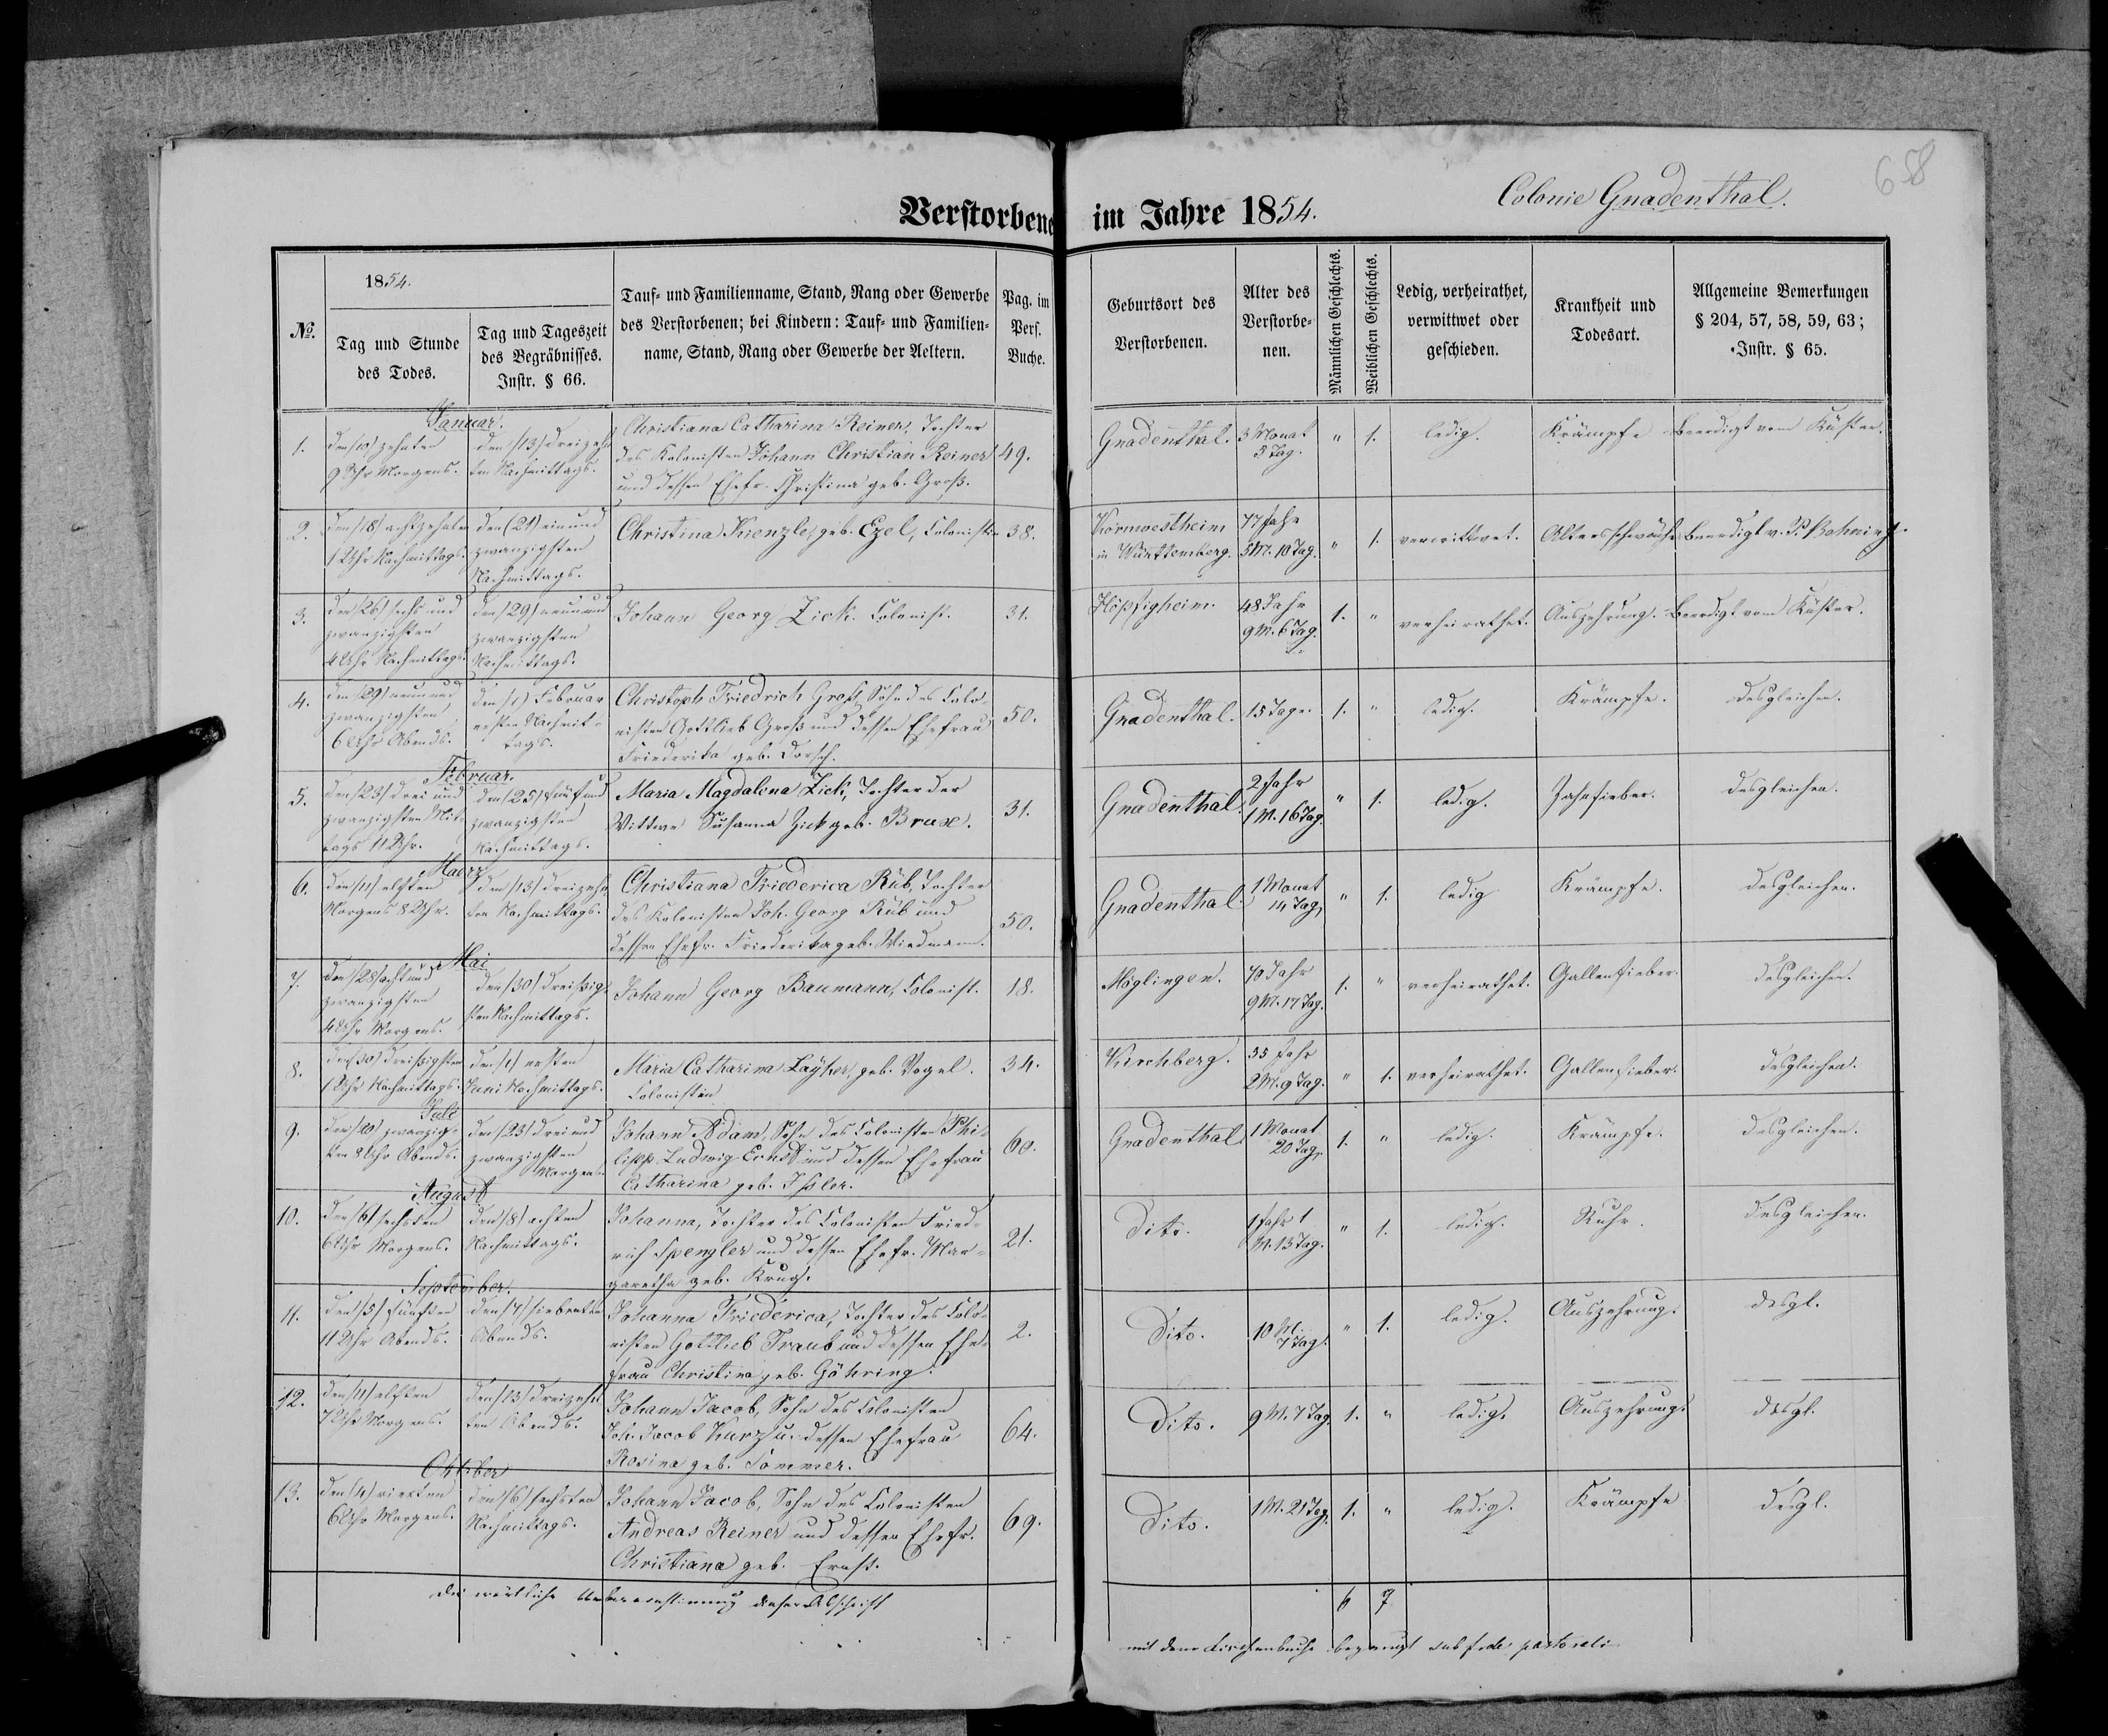 658
Colonie Gnadenthal.
Verstorbene im Jahre 1854.
№.
1854.
Tag und Stunde
des Todes.
Tag und Tageszeit
des Begräbnisses.
Instr. § 66.
Tauf- und Familienname, Stand, Rang oder Gewerbe
des Verstorbenen; bei Kindern: Tauf- und Familien-
name, Stand, Rang oder Gewerbe der Aeltern.
Pag. im
Pers.
Buche.
Geburtsort des
Verstorbenen.
Alter des
Verstorbe-
nen.
Männlichen Geschlechts.
Weiblichen Geschlechts.
Ledig, verheirathet,
verwittwet oder
geschieden.
Krankheit und
Todesart.
Allgemeine Bemerkungen
§ 204, 57, 58, 59, 63;
Instr. § 65.
Januar.
1.
den (10) zehnten
9 Uhr Morgens.
den (13) dreizehn
ten Nachmittags.
Christiana Catharina Reiner, Tochter
des Kolonisten Johann Christian Reiner
und dessen Ehefr. Christina geb. Groß.
49.
Gnadenthal.
3 Monat
3 Tag.
" 1.
ledig.
Krämpfe
beerdigt vom Küster.
2.
den (18) achtzehnten
1 Uhr Nachmittags.
den (21) ein und
zwanzigsten
Nachmittags.
Christina Kienzle, geb. Ezel, Colonistin
38.
Kornwestheim
in Württemberg.
77 Jahr
5 M. 10 Tag.
" 1.
verwittwet.
Altersschwäche
beerdigt v. P. Behning.
3.
den (26) sechs und
zwanzigsten
4 Uhr Nachmittags.
den (29) neun und
zwanzigsten
Nachmittags.
Johann Georg Zick. Colonist.
31.
Höpfigheim.
48 Jahr
9 M. 6 Tag.
1. "
verheirathet.
Auszehrung.
beerdigt vom Küster.
4.
den (29) neun und
zwanzigsten
6 Uhr Abends.
den (1) Februar
ersten Nachmit-
tags.
Christoph Friedrich Groß, Sohn des Colo-
nisten Gottlieb Groß und dessen Ehefrau
Friederika geb. Dorsch.
50.
Gnadenthal.
15 Tage.
1. "
ledig.
Krämpfe.
desgleichen.
Februar.
5.
den (23) drei und
zwanzigsten Mit-
tags 11 Uhr.
den (25) fünf und
zwanzigsten
Nachmittags.
Maria Magdalena Zick, Tochter der
Wittwe Susanna Zick geb. Bruse.
31.
Gnadenthal.
2 Jahr
1 M. 16 Tag.
" 1.
ledig.
Zahnfieber.
desgleichen.
Maerz
6.
den (11) elften
Morgens 8 Uhr.
den (13) dreizehn
ten Nachmittags.
Christiana Friederica Rüb, Tochter
des Kolonisten Joh. Georg Rüb und
dessen Ehefr. Friederika geb. Wiedmann.
50.
Gnadenthal.
1 Monat
14 Tag.
" 1.
ledig
Krämpfe.
desgleichen.
Mai
7.
den (28) acht und
zwanzigsten
4 Uhr Morgens.
den (30) dreißig
sten Nachmittags.
Johann Georg Baumann, Colonist.
18.
Möglingen.
70 Jahr
9 M. 17 Tag.
1. "
verheirathet.
Gallenfieber.
desgleichen.
8.
den (30) dreißigsten
1 Uhr Nachmittags.
den (1) ersten
Juni Nachmittags.
Maria Catharina Layher, geb. Vogel.
Colonistin
34.
Kirchberg.
35 Jahr
2 M. 9 Tag.
" 1.
verheirathet.
Gallenfieber.
desgleichen.
Juli
9.
den (20) zwanzig-
sten 8 Uhr Abends.
den (23) drei und
zwanzigsten
Morgens.
Johann Adam, Sohn des Colonisten Phi-
lipp Ludwig Ernst und dessen Ehefrau
Catharina geb. Ißler.
60.
Gnadenthal.
1 Monat
20 Tag.
1. "
ledig.
Krämpfe.
desgleichen.
August
10.
den (6) sechsten
6 Uhr Morgens.
den (8) achten
Nachmittags.
Johanna, Tochter des Colonisten Fried-
rich Spengler und dessen Ehefr. Mar-
garetha geb. Krug.
21.
Dito.
1 Jahr 1
M. 13 Tag.
" 1.
ledig.
Ruhr.
desgleichen.
September.
11.
den (5) fünften
11 Uhr Abends.
den (7) siebenten
Abends.
Johanna Friederica, Tochter des Colo-
nisten Gottlieb Traub und dessen Ehe-
frau Christina geb. Göhring.
2.
Dito.
10 M.
7 Tag.
" 1.
ledig.
Auszehrung.
desgl.
12.
den (11) elften
7 Uhr Morgens.
den (13) dreizehn
ten Abends.
Johann Jacob, Sohn des Colonisten
Joh. Jacob Kurz u. dessen Ehefrau
Rosina geb. Sommer.
64.
Dito.
9 M. 7 Tag.
1. "
ledig.
Auszehrung.
desgl.
Oktober
13.
den (4) vierten
6 Uhr Morgens.
den (6) sechsten
Nachmittags.
Johann Jacob, Sohn des Colonisten
Andreas Reiner und dessen Ehefr.
Christiana geb. Ernst.
69.
Dito.
1 M. 21 Tag.
1. "
ledig.
Krämpfe
desgl.
6 7
Die wörtliche Uebereinstimmung dieser Abschrift
mit dem Kirchenbuche bezeugt sub fide pastorali